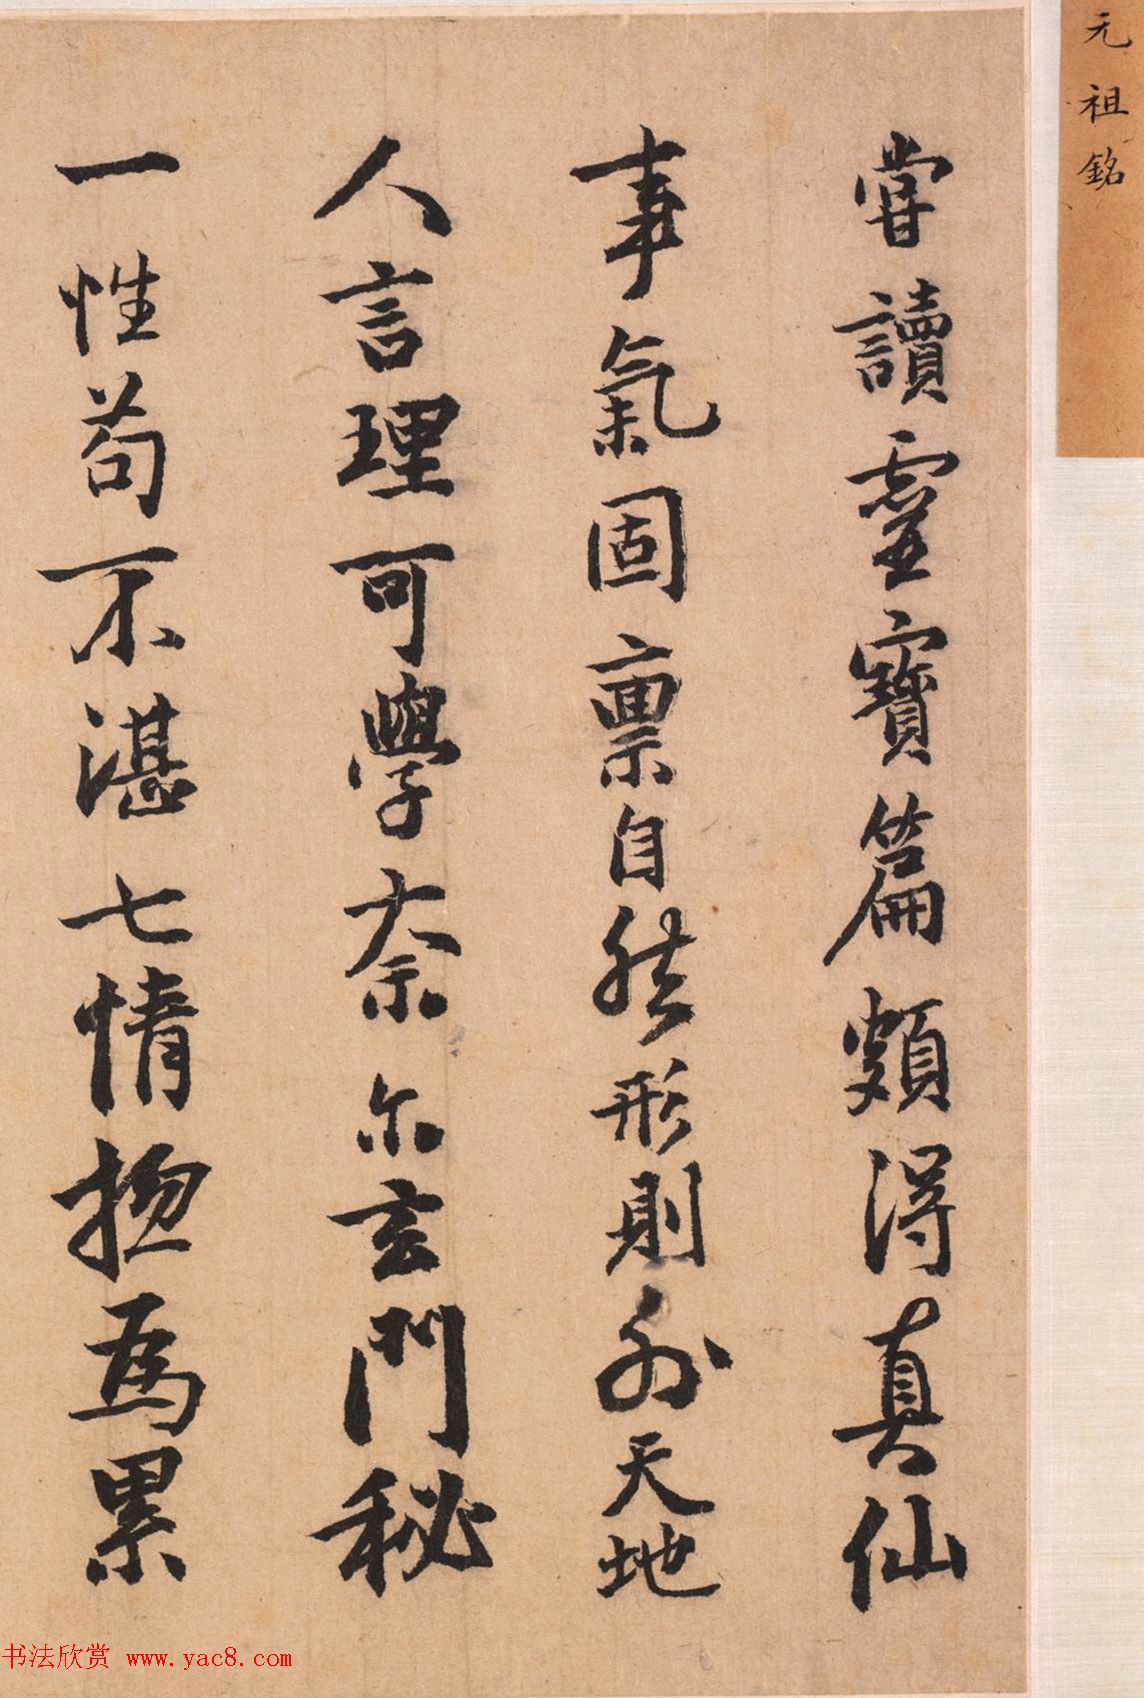 元祖銘
嘗讀靈寶篇頗得真仙
事氣固禀自然形則外天地
人言理可學奈尔玄門秘
一性苟不湛七情揔為累
书法欣赏 www.yac8.com